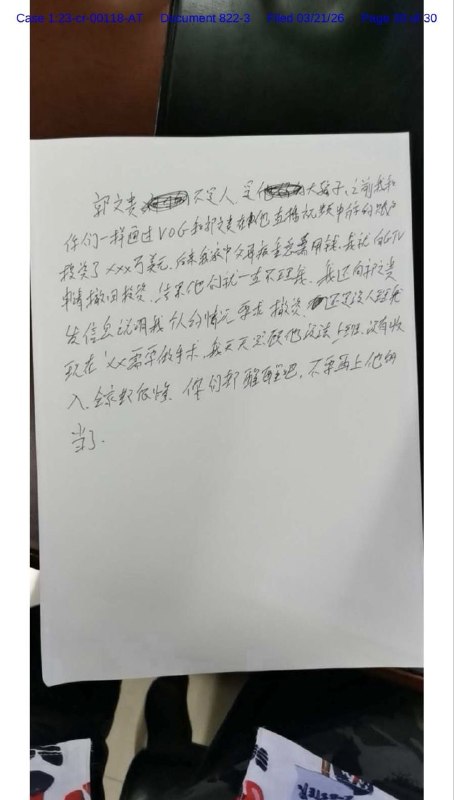 Case 1:23-cr-00118-AT Document 822-3 Filed 03/21/26 Page of 30
郭文贵 不是人，是 大骗子，之前我和
你们一样通过VOG和郭文贵在其他直播视频中给的账户
投资了xxx万美元，后来我家中父母报重急需用钱，我就向GTV
申请撤回投资，结果他们就一直不理我，我还向郭文贵
发信息说明我个人的情况要求撤资，还是没人理我
现在xx需要做手术，我天天照顾他没法上班，没有收
入，全家都很惨，你们都醒醒吧，不要再上他的
当了。